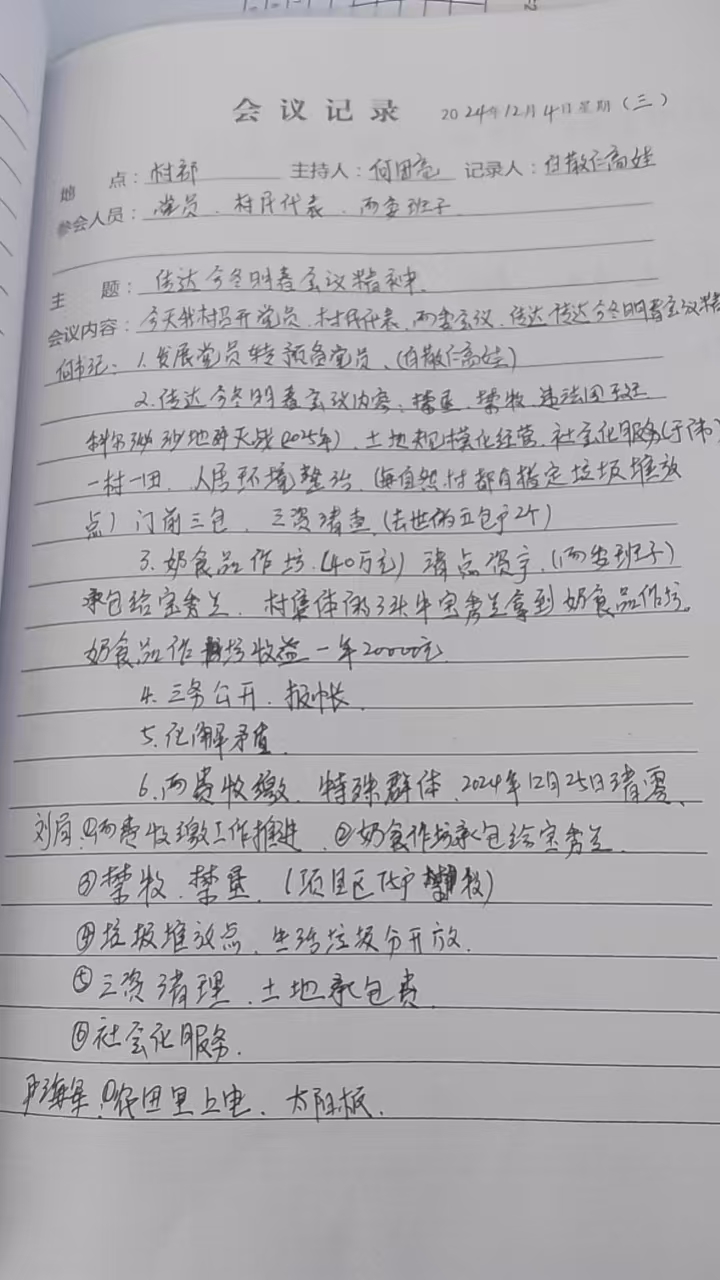 会议记录 2024年12月4日星期(三)
地 点: 村部 主持人: 何国亮 记录人: 白散仁高娃
参会人员: 党员、村民代表、两委班子
主 题: 传达今冬明春会议精神.
会议内容: 今天我村召开党员、村民代表、两委会议、传达传达今冬明春会议精
何书记: 1.发展党员转预备党员、(白散仁高娃)
2.传达今冬明春会议内容: 禁垦、禁牧、违法图斑
科尔沁沙地歼灭战(2025年)、土地规模化经营、社会化服务(
一村一田、人居环境整治、(每自然村都有指定垃圾堆放
点) 门前三包、三资清查、(去世的五包户2个)
3.奶食品作坊、(40万元) 清点资产、(两委班子)
承包给宝秀兰、村集体的3头牛宝秀兰拿到奶食品作坊。
奶食品作坊收益一年20000元.
4.三务公开、报帐.
5.化解矛盾.
6.两费收缴、特殊群体、2024年12月25日清零、
刘局: ①两费收缴工作推进、②奶食作坊承包给宝秀兰.
③禁牧、禁垦、(项目区
④垃圾堆放点、生活垃圾分开放.
⑤三资清理、土地承包费.
⑥社会化服务.
海军: ①农田里上电、太阳板.